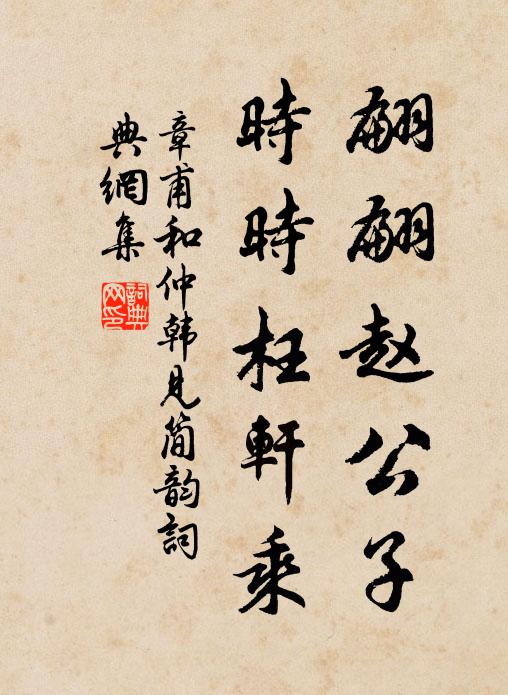 翩翩赵公子
時時枉軒乘
章甫和仲韩見简韵詞
典網集
詞典网印